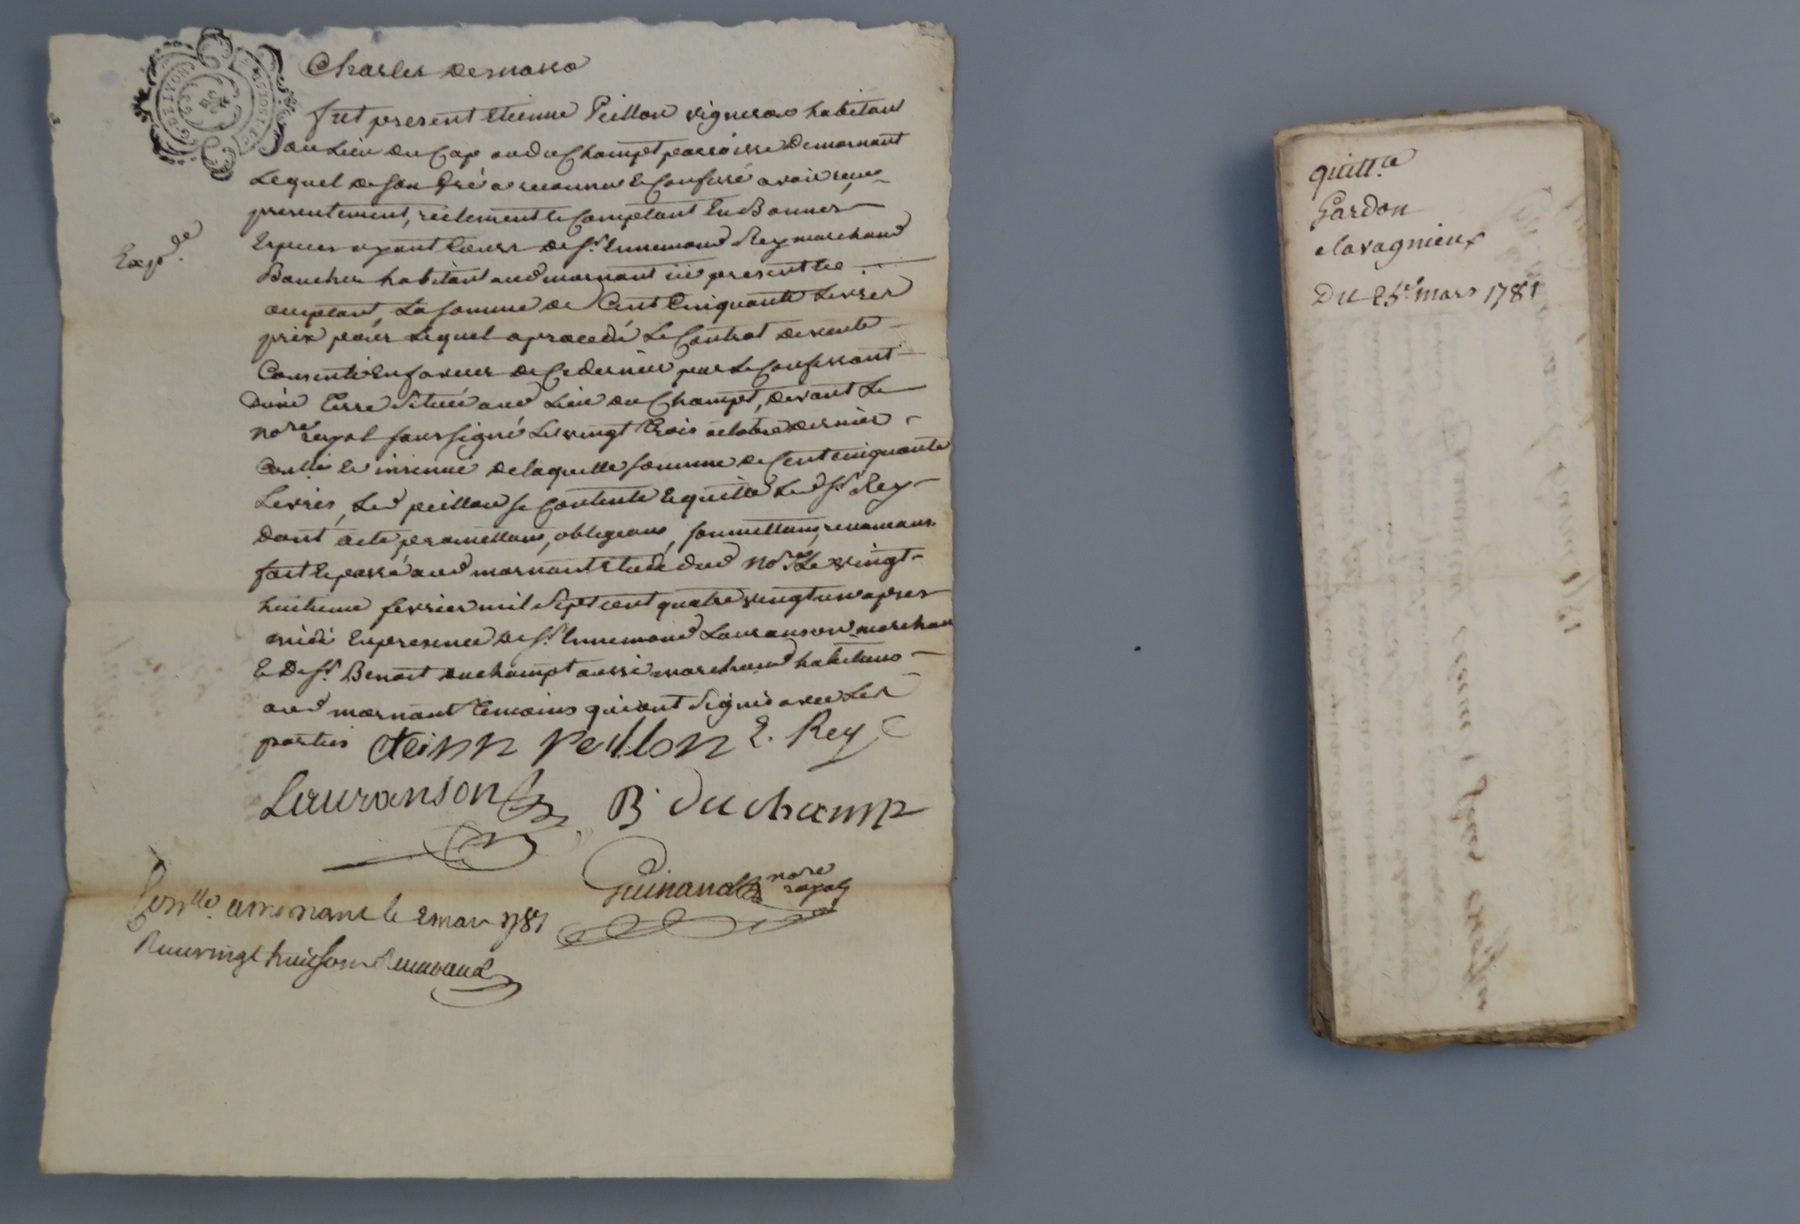 Charles Demasso
fut present Etienne Peillon vigneron habitant
au Lieu du Cap aud. Champt paroisse demornant
Lequel de son gré a reconnu & Confessé avoir reçu
presentement, réelement & Comptant En Bonnes
Especes ayant Cours de Sr. Ennemond Rey marchand
Exp.de
Boucher habitant aud mornant ici present &c
acceptant, La somme de Cent Cinquante Livres
prix pour Lequel a procedé Le Contrat de vente
Consentie En faveur de Ce dernier par Le Confessant
d'une Terre Située aud Lieu du Champt, devant Le
nore. royal soussigné Le vingt trois octobre dernier
Con.llé & insinué de laquelle somme de Cent cinquante
Livres, Led peillon se Contente & quitte Led Sr. Rey
dont acte, promettans, obligeans, soumettans, renonceans
fait & passé aud mornant Etude dud Nore. Le vingt
huitieme fevrier mil Sept cent quatre vingt un apres
midi En presence de Sr. Ennemond Lauranson marchand
& de Sr. Benoit duchampt aussi marchand habitans
aud mornant temoins qui ont Signé avec Les
parties eteinn peillon E. Rey
Lauranson B. duchamp
Guinand nore royal
Con.llé. a mornant le 2 mars 1781
Recu vingt huit sols
quitt.ce
Gardon
clavagnieux
Du 25e mars 1781